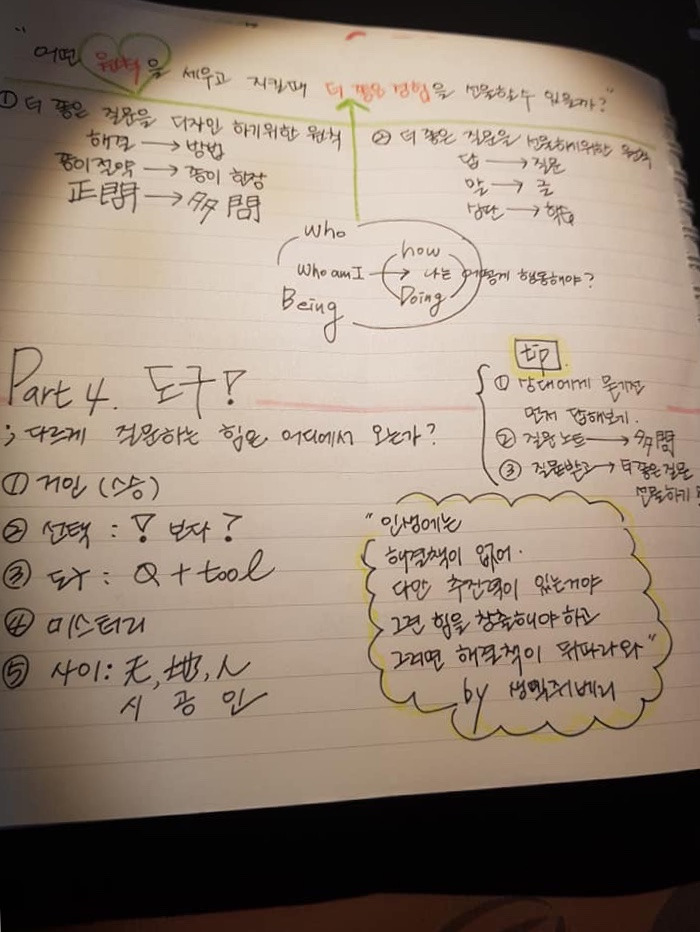 "어떤 원칙을 세우고 지킬때 더 좋은 경험을 선물할 수 있을까?"
① 더 좋은 질문을 디자인 하기위한 원칙
해결 → 방법
종이절약 → 종이 한장
正問 → 多問
② 더 좋은 질문을 선물하기위한 원칙
답 → 질문
말 → 글
상단 →
who
how
who am I → 나는 어떻게 행동해야?
Being
Doing
Part 4. 도구!
; 다르게 질문하는 힘은 어디에서 오는가?
① 거인 (스승)
② 선택 : ! 보다 ?
③ 도구 : Q + tool
④ 미스터리
⑤ 사이 : 天, 地, 人
시 공 인
tip.
① 상대에게 묻기전
먼저 답해보기.
② 질문노트 → 多問
③ 질문받고 → 더좋은질문
선물하기
"인생에는
해결책이 없어.
다만 추진력이 있는거야
그런 힘을 창출해야 하고
그러면 해결책이 뒤따라와"
by 생떽쥐베리